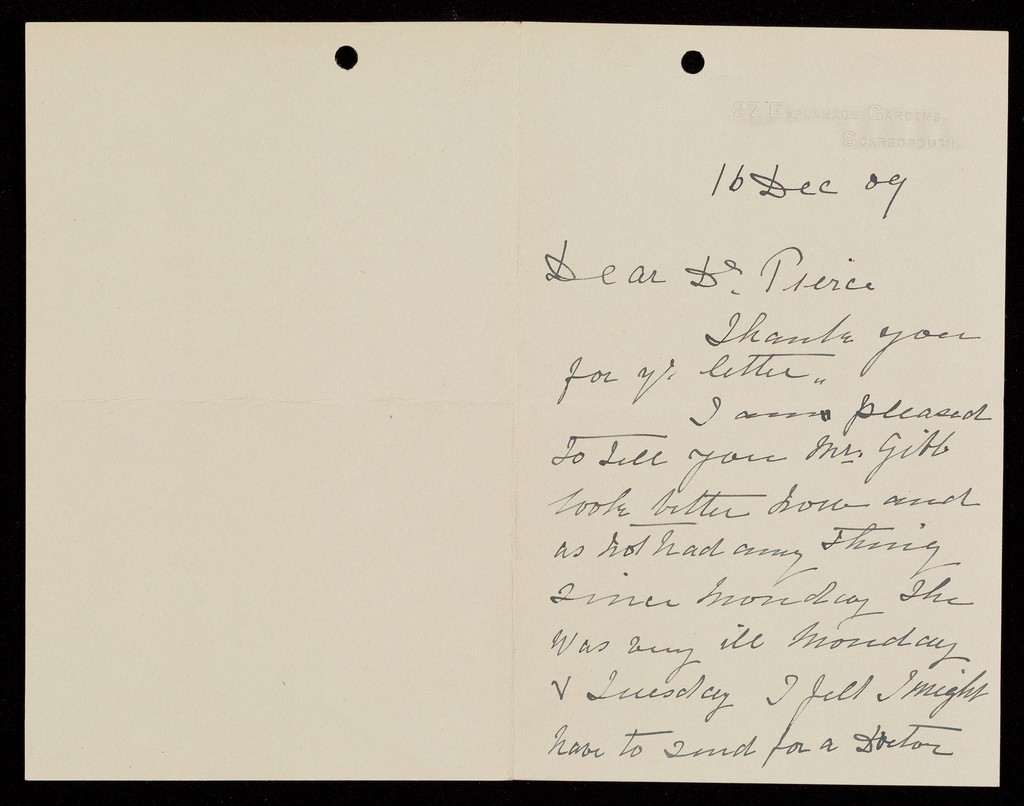 27 Esplanade Gardens,
Scarborough.
16 Dec 09
Dear Dr. Pierce
Thank you
for yr. letter.,
I am pleased
to tell you Mrs. Gibb
look better now and
as not had any thing
since Monday She
was very ill Monday
& Tuesday I felt I might
have to send for a Doctor